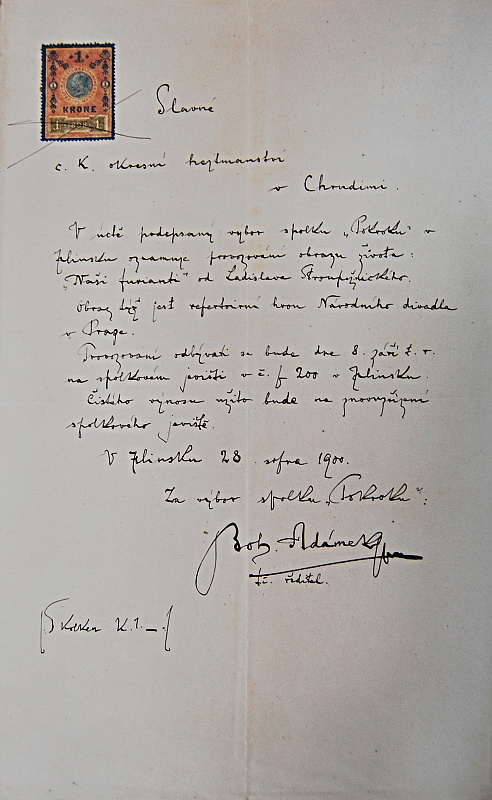 1
KRONE
Slavné
c. K. okresní hejtmanství
v Chrudimi.
V úctě podepsaný výbor spolku „Pokroku" v
Hlinsku oznamuje provozování obrazu života:
„Naši furianti" od Ladislava Stroupežnického.
Obraz týž jest repertoirní hrou Národního divadla
v Praze.
Provozování odbývati se bude dne 8. září t. r.
na spolkovém jevišti v č. p 200 v Hlinsku.
Čistého výnosu užito bude na znovuzřízení
spolkového jeviště.
V Hlinsku 28. srpna 1900.
Za výbor spolku „Pokroku":
Boh. Adámek
t. č. ředitel.
Kolken K. 1.—.